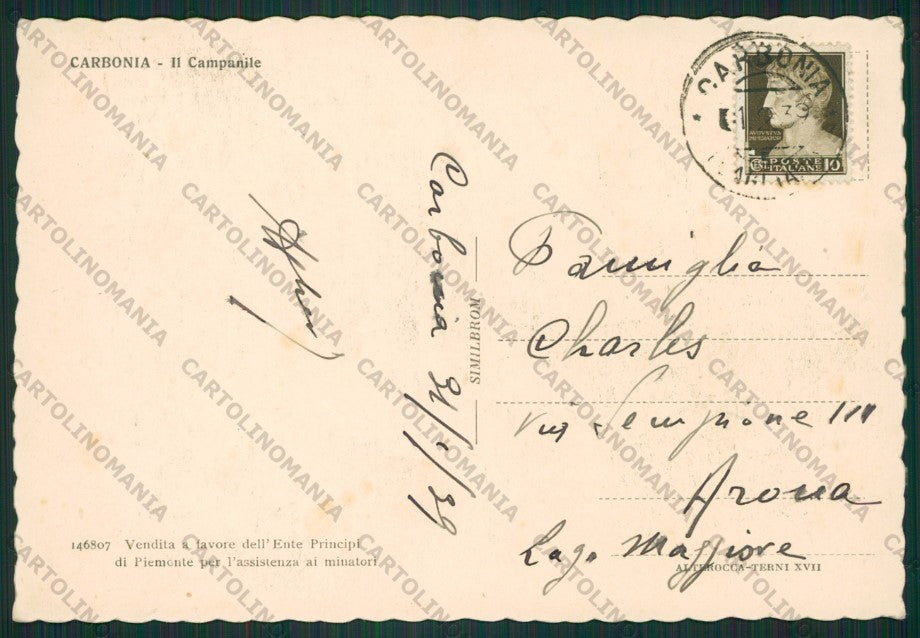 CARBONIA - Il Campanile
CARBONIA
POSTE
ITALIANE 10
Carbonia 31/1/39
SIMILBROM
Famiglia
Charles
Via Sempione 111
Arona
Lago Maggiore
146807 Vendita a favore dell'Ente Principi
di Piemonte per l'assistenza ai minatori
ALTEROCCA-TERNI XVII
CARTOLINOMANIA